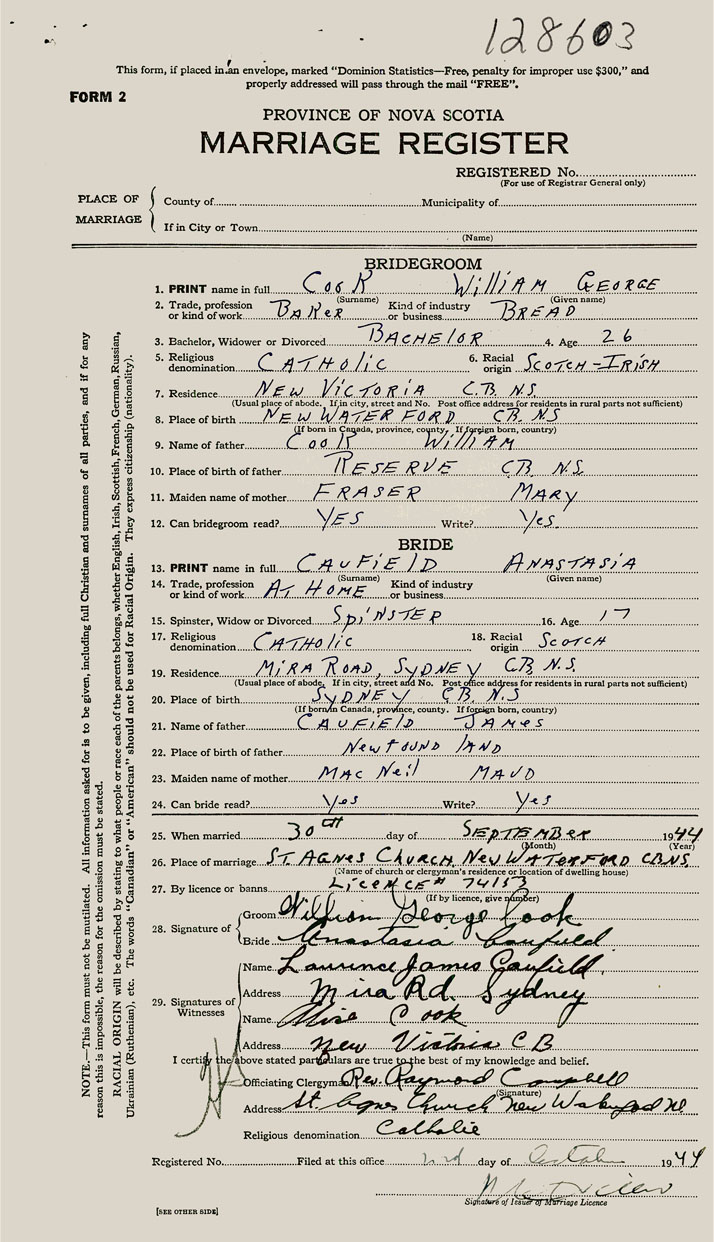 128603
This form, if placed in an envelope, marked "Dominion Statistics—Free, penalty for improper use $300," and
properly addressed will pass through the mail "FREE".
FORM 2
PROVINCE OF NOVA SCOTIA
MARRIAGE REGISTER
REGISTERED No.
(For use of Registrar General only)
PLACE OF MARRIAGE
County of Municipality of
If in City or Town
(Name)
BRIDEGROOM
1. PRINT name in full Cook William George
(Surname) (Given name)
2. Trade, profession or kind of work Baker Kind of industry or business Bread
3. Bachelor, Widower or Divorced Bachelor 4. Age 26
5. Religious denomination Catholic 6. Racial origin Scotch-Irish
7. Residence New Victoria C.B. N.S.
(Usual place of abode. If in city, street and No. Post office address for residents in rural parts not sufficient)
8. Place of birth New Waterford C.B. N.S
(If born in Canada, province, county. If foreign born, country)
9. Name of father Cook William
10. Place of birth of father Reserve C.B. N.S.
11. Maiden name of mother Fraser Mary
12. Can bridegroom read? Yes Write? Yes.
BRIDE
13. PRINT name in full Caufield Anastasia
(Surname) (Given name)
14. Trade, profession or kind of work At Home Kind of industry or business
15. Spinster, Widow or Divorced Spinster 16. Age 17
17. Religious denomination Catholic 18. Racial origin Scotch
19. Residence Mira Road, Sydney C.B. N.S.
(Usual place of abode. If in city, street and No. Post office address for residents in rural parts not sufficient)
20. Place of birth Sydney C.B. N.S
(If born in Canada, province, county. If foreign born, country)
21. Name of father Caufield James
22. Place of birth of father Newfoundland
23. Maiden name of mother MacNeil Maud
24. Can bride read? Yes Write? Yes
25. When married 30th day of September 1944
(Month) (Year)
26. Place of marriage St. Agnes Church, New Waterford C.B. N.S.
(Name of church or clergyman's residence or location of dwelling house)
27. By licence or banns Licence # 74153
(If by licence, give number)
28. Signature of
Groom William George Cook
Bride Anastasia Caufield
29. Signatures of Witnesses
Name Laurence James Caufield
Address Mira Rd. Sydney
Name Cook
Address New Victoria C B
I certify the above stated particulars are true to the best of my knowledge and belief.
Officiating Clergyman Rev. Raymond Campbell
(Signature)
Address St. Agnes Church New
Religious denomination Catholic
Registered No. Filed at this office 2nd day of October 1944
Signature of Issuer of Marriage Licence
[SEE OTHER SIDE]
NOTE.—This form must not be mutilated. All information asked for is to be given, including full Christian and surnames of all parties, and if for any
reason this is impossible, the reason for the omission must be stated.
RACIAL ORIGIN will be described by stating to what people or race each of the parents belongs, whether English, Irish, Scottish, French, German, Russian,
Ukrainian (Ruthenian), etc. The words "Canadian" or "American" should not be used for Racial Origin. They express citizenship (nationality).